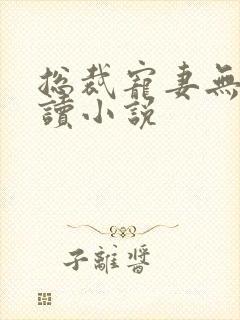 总裁寵妻無
讀小说
子離醬